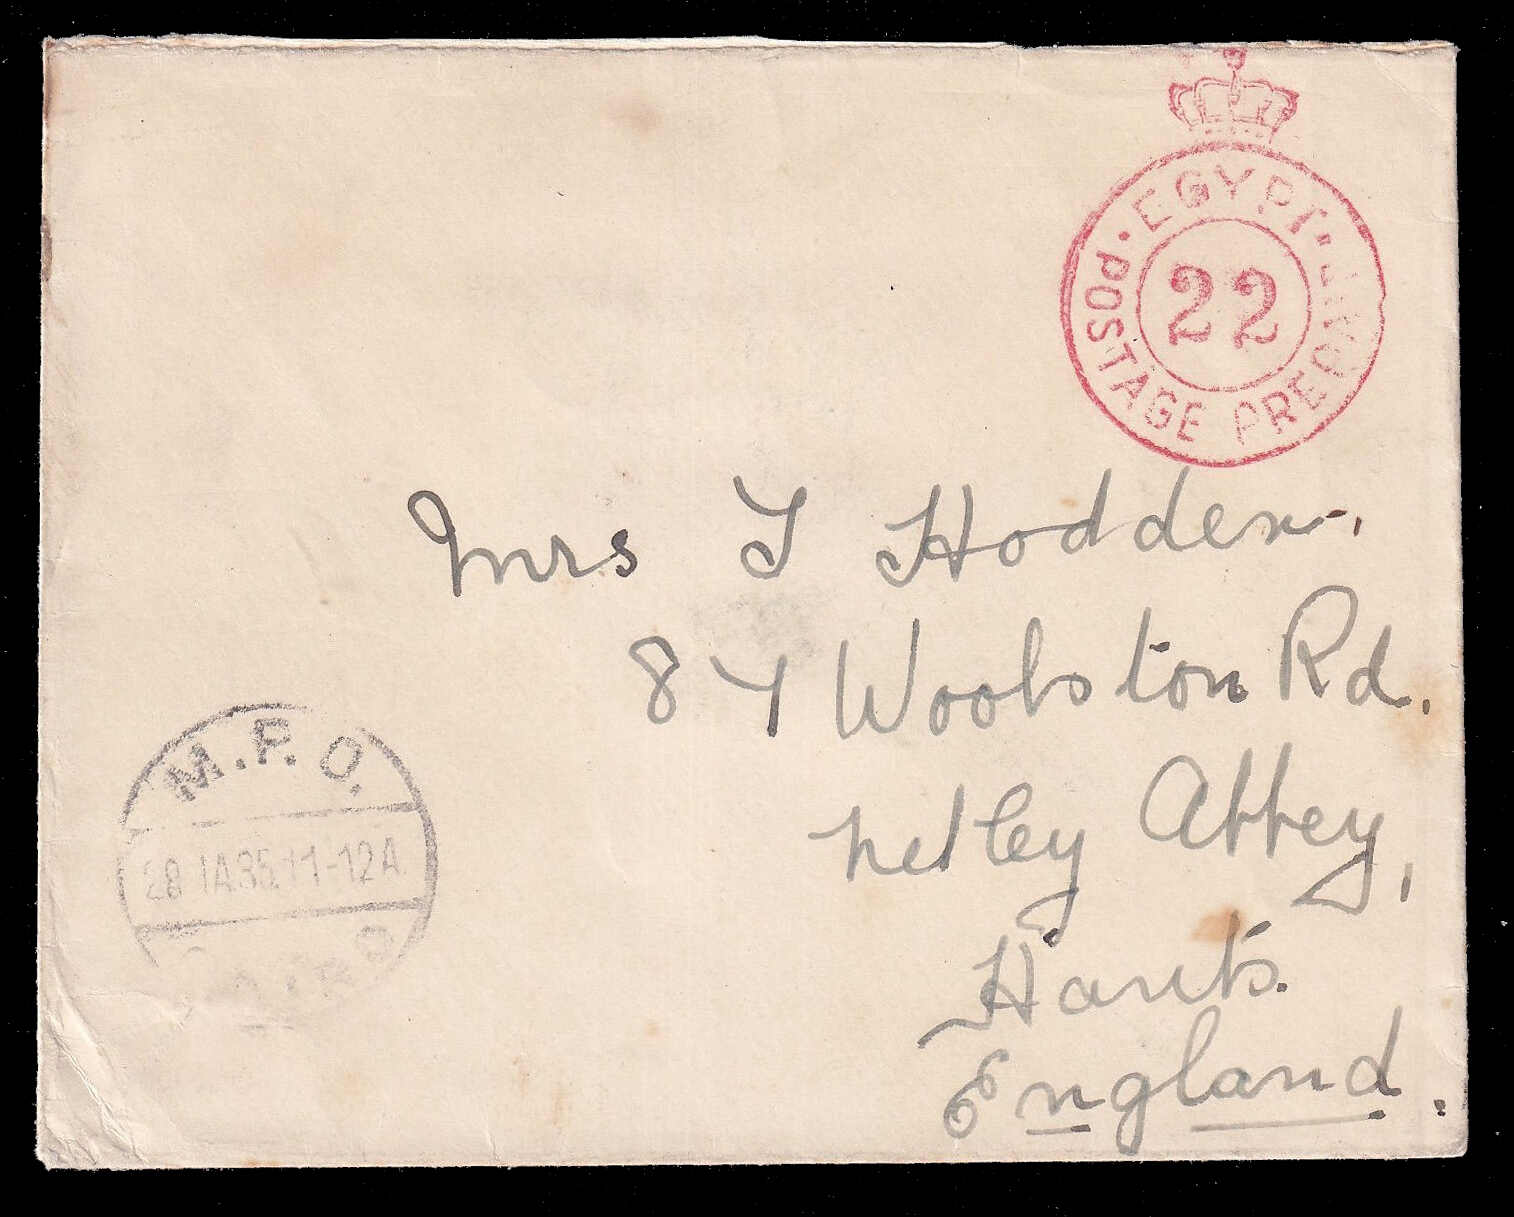 · EGYPT ·
POSTAGE PREPAID
22
Mrs T Hodden.
84 Woolston Rd.
Netley Abbey,
Hants.
England.
M.P.O.
28 JA 35.11-12A
CAIRO